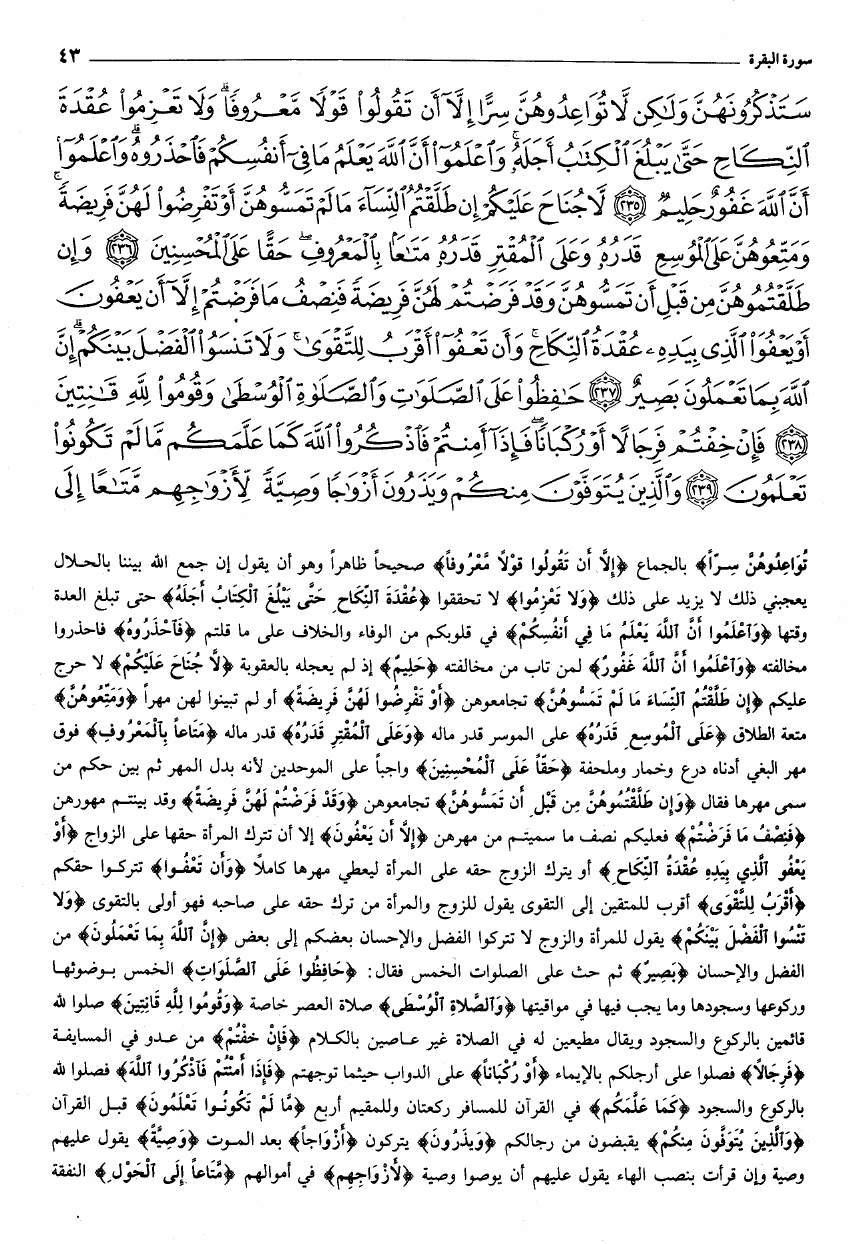 سورة البقرة ٤٣
سَتَذْكُرُونَهُنَّ وَلَٰكِن لَّا تُوَاعِدُوهُنَّ سِرًّا إِلَّآ أَن تَقُولُوا۟ قَوْلًا مَّعْرُوفًا ۚ وَلَا تَعْزِمُوا۟ عُقْدَةَ
ٱلنِّكَاحِ حَتَّىٰ يَبْلُغَ ٱلْكِتَٰبُ أَجَلَهُۥ ۚ وَٱعْلَمُوٓا۟ أَنَّ ٱللَّهَ يَعْلَمُ مَا فِىٓ أَنفُسِكُمْ فَٱحْذَرُوهُ ۚ وَٱعْلَمُوٓا۟
أَنَّ ٱللَّهَ غَفُورٌ حَلِيمٌ ٢٣٥ لَّا جُنَاحَ عَلَيْكُمْ إِن طَلَّقْتُمُ ٱلنِّسَآءَ مَا لَمْ تَمَسُّوهُنَّ أَوْ تَفْرِضُوا۟ لَهُنَّ فَرِيضَةً ۚ
وَمَتِّعُوهُنَّ عَلَى ٱلْمُوسِعِ قَدَرُهُۥ وَعَلَى ٱلْمُقْتِرِ قَدَرُهُۥ مَتَٰعًۢا بِٱلْمَعْرُوفِ ۖ حَقًّا عَلَى ٱلْمُحْسِنِينَ ٢٣٦ وَإِن
طَلَّقْتُمُوهُنَّ مِن قَبْلِ أَن تَمَسُّوهُنَّ وَقَدْ فَرَضْتُمْ لَهُنَّ فَرِيضَةً فَنِصْفُ مَا فَرَضْتُمْ إِلَّآ أَن يَعْفُونَ
أَوْ يَعْفُوَا۟ ٱلَّذِى بِيَدِهِۦ عُقْدَةُ ٱلنِّكَاحِ ۚ وَأَن تَعْفُوٓا۟ أَقْرَبُ لِلتَّقْوَىٰ ۚ وَلَا تَنسَوُا۟ ٱلْفَضْلَ بَيْنَكُمْ ۚ إِنَّ
ٱللَّهَ بِمَا تَعْمَلُونَ بَصِيرٌ ٢٣٧ حَٰفِظُوا۟ عَلَى ٱلصَّلَوَٰتِ وَٱلصَّلَوٰةِ ٱلْوُسْطَىٰ وَقُومُوا۟ لِلَّهِ قَٰنِتِينَ
٢٣٨ فَإِنْ خِفْتُمْ فَرِجَالًا أَوْ رُكْبَانًا ۖ فَإِذَآ أَمِنتُمْ فَٱذْكُرُوا۟ ٱللَّهَ كَمَا عَلَّمَكُم مَّا لَمْ تَكُونُوا۟
تَعْلَمُونَ ٢٣٩ وَٱلَّذِينَ يُتَوَفَّوْنَ مِنكُمْ وَيَذَرُونَ أَزْوَٰجًا وَصِيَّةً لِّأَزْوَٰجِهِم مَّتَٰعًا إِلَى
تُوَاعِدُوهُنَّ سِرّاً﴾ بالجماع ﴿إِلَّا أَن تَقُولُوا قَوْلاً مَّعْرُوفاً﴾ صحيحاً ظاهراً وهو أن يقول إن جمع الله بيننا بالحلال
يعجبني ذلك لا يزيد على ذلك ﴿وَلَا تَعْزِمُوا﴾ لا تحققوا ﴿عُقْدَةَ ٱلنِّكَاحِ حَتَّى يَبْلُغَ ٱلْكِتَابُ أَجَلَهُ﴾ حتى تبلغ العدة
وقتها ﴿وَٱعْلَمُوا أَنَّ ٱللَّهَ يَعْلَمُ مَا فِي أَنْفُسِكُمْ﴾ في قلوبكم من الوفاء والخلاف على ما قلتم ﴿فَٱحْذَرُوهُ﴾ فاحذروا
مخالفته ﴿وَٱعْلَمُوا أَنَّ ٱللَّهَ غَفُورٌ﴾ لمن تاب من مخالفته ﴿حَلِيمٌ﴾ إذ لم يعجله بالعقوبة ﴿لَّا جُنَاحَ عَلَيْكُمْ﴾ لا حرج
عليكم ﴿إِن طَلَّقْتُمُ ٱلنِّسَاءَ مَا لَمْ تَمَسُّوهُنَّ﴾ تجامعوهن ﴿أَوْ تَفْرِضُوا لَهُنَّ فَرِيضَةً﴾ أو لم تبينوا لهن مهراً ﴿وَمَتِّعُوهُنَّ﴾
متعة الطلاق ﴿عَلَى ٱلْمُوسِعِ قَدَرُهُ﴾ على الموسر قدر ماله ﴿وَعَلَى ٱلْمُقْتِرِ قَدَرُهُ﴾ قدر ماله ﴿مَتَاعاً بِٱلْمَعْرُوفِ﴾ فوق
مهر البغي أدناه درع وخمار وملحفة ﴿حَقّاً عَلَى ٱلْمُحْسِنِينَ﴾ واجباً على الموحدين لأنه بدل المهر ثم بين حكم من
سمى مهرها فقال ﴿وَإِن طَلَّقْتُمُوهُنَّ مِن قَبْلِ أَن تَمَسُّوهُنَّ﴾ تجامعوهن ﴿وَقَدْ فَرَضْتُمْ لَهُنَّ فَرِيضَةً﴾ وقد بينتم مهورهن
﴿فَنِصْفُ مَا فَرَضْتُمْ﴾ فعليكم نصف ما سميتم من مهرهن ﴿إِلَّا أَن يَعْفُونَ﴾ إلا أن تترك المرأة حقها على الزواج ﴿أَوْ
يَعْفُو ٱلَّذِي بِيَدِهِ عُقْدَةُ ٱلنِّكَاحِ﴾ أو يترك الزوج حقه على المرأة ليعطي مهرها كاملاً ﴿وَأَن تَعْفُوا﴾ تتركوا حقكم
﴿أَقْرَبُ لِلتَّقْوَى﴾ أقرب للمتقين إلى التقوى يقول للزوج والمرأة من ترك حقه على صاحبه فهو أولى بالتقوى ﴿وَلَا
تَنْسَوُا ٱلْفَضْلَ بَيْنَكُمْ﴾ يقول للمرأة والزوج لا تتركوا الفضل والإحسان بعضكم إلى بعض ﴿إِنَّ ٱللَّهَ بِمَا تَعْمَلُونَ﴾ من
الفضل والإحسان ﴿بَصِيرٌ﴾ ثم حث على الصلوات الخمس فقال: ﴿حَافِظُوا عَلَى ٱلصَّلَوَاتِ﴾ الخمس بوضوئها
وركوعها وسجودها وما يجب فيها في مواقيتها ﴿وَٱلصَّلاةِ ٱلْوُسْطَى﴾ صلاة العصر خاصة ﴿وَقُومُوا لِلَّهِ قَانِتِينَ﴾ صلوا لله
قائمين بالركوع والسجود ويقال مطيعين له في الصلاة غير عاصين بالكلام ﴿فَإِنْ خِفْتُمْ﴾ من عدو في المسايفة
﴿فَرِجَالاً﴾ فصلوا على أرجلكم بالإيماء ﴿أَوْ رُكْبَاناً﴾ على الدواب حيثما توجهتم ﴿فَإِذَا أَمِنْتُمْ فَٱذْكُرُوا ٱللَّهَ﴾ فصلوا لله
بالركوع والسجود ﴿كَمَا عَلَّمَكُم﴾ في القرآن للمسافر ركعتان وللمقيم أربع ﴿مَّا لَمْ تَكُونُوا تَعْلَمُونَ﴾ قبل القرآن
﴿وَٱلَّذِينَ يُتَوَفَّونَ مِنكُمْ﴾ يقبضون من رجالكم ﴿وَيَذَرُونَ﴾ يتركون ﴿أَزْوَاجاً﴾ بعد الموت ﴿وَصِيَّةً﴾ يقول عليهم
وصية وإن قرأت بنصب الهاء يقول عليهم أن يوصوا وصية ﴿لِأَزْوَاجِهِم﴾ في أموالهم ﴿مَّتَاعاً إِلَى ٱلْحَوْلِ﴾ النفقة